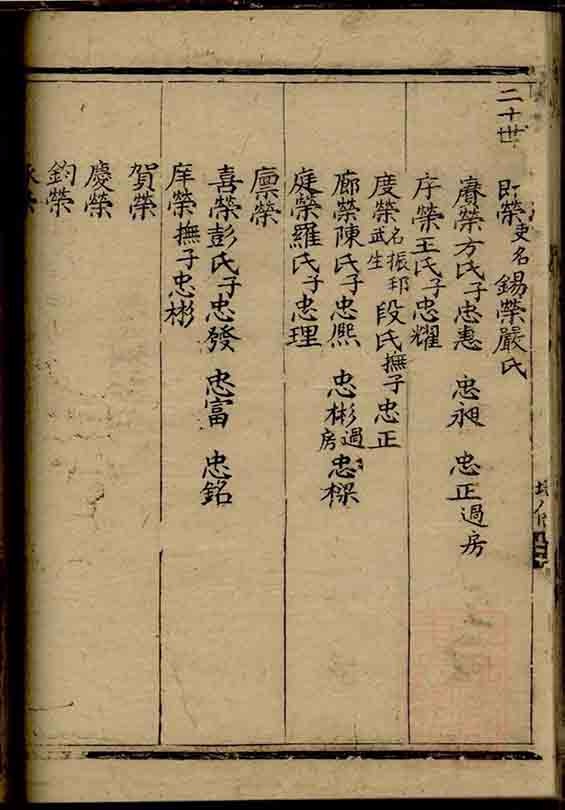 二十世
即榮吏名錫榮嚴氏
賡榮方氏子忠惠 忠昶 忠正過房
序榮王氏子忠耀
度榮武生名振邦段氏撫子忠正
廊榮陳氏子忠熙 忠彬過房忠樑
庭榮羅氏子忠理
廩榮
喜榮彭氏子忠發 忠富 忠銘
庠榮撫子忠彬
賀榮
慶榮
鈞榮